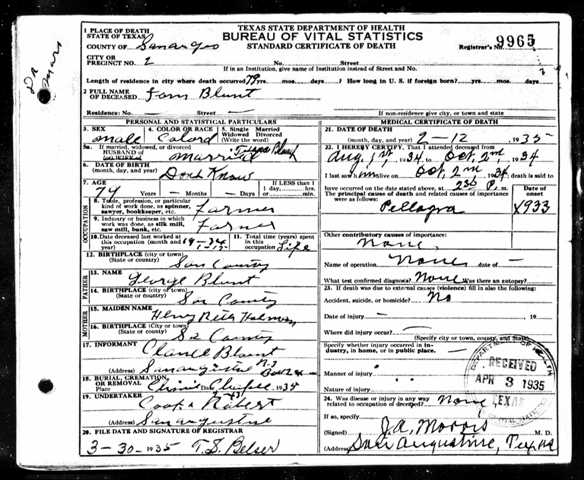 TEXAS STATE DEPARTMENT OF HEALTH
BUREAU OF VITAL STATISTICS
STANDARD CERTIFICATE OF DEATH
1 PLACE OF DEATH
STATE OF TEXAS
COUNTY OF
Registrar's No. 9965
CITY OR
PRECINCT NO. 2 No. Street
If in an Institution, give name of Institution instead of Street and No.
Length of residence in city where death occurred 79 yrs. mos. days / How long in U. S. if foreign born? yrs. mos. days
2 FULL NAME
OF DECEASED Blunt
Residence: No. Street
If non-residence give city, or town and state
PERSONAL AND STATISTICAL PARTICULARS
3. SEX 4. COLOR OR RACE 5. Single Married Widowed Divorced (Write the word)
male Colord
5a. If married, widowed or divorced
HUSBAND OF
(or) WIFE OF
married
6. DATE OF BIRTH
(month, day, and year) Dont Know
7. AGE Years Months Days If LESS than 1 day, hrs. min.
74
8. Trade, profession, or particular kind of work done, as spinner, sawyer, bookkeeper, etc. Farmer
9. Industry or business in which work was done, as silk mill, saw mill, bank, etc. Farmer
10. Date deceased last worked at this occupation (month and year)
11. Total time (years) spent in this occupation Life
12. BIRTHPLACE (city or town)
(State or county) County
FATHER
13. NAME
George Blunt
14. BIRTHPLACE (city or town)
(State or county) County
MOTHER
15. MAIDEN NAME
16. BIRTHPLACE (city or town)
(State or county)
17. INFORMANT
Blount
(Address) San Augustine
18. BURIAL, CREMATION, OR REMOVAL
Place
19. UNDERTAKER
(Address) San Augustine
20. FILE DATE AND SIGNATURE OF REGISTRAR
3-30-1935 T.S. Belser
MEDICAL CERTIFICATE OF DEATH
21. DATE OF DEATH
(month, day, and year) 2-12 1935
22. I HEREBY CERTIFY, That I attended deceased from
Aug 1st 1934 to Oct, 2nd 1934
I last saw him alive on Oct, 2nd 1934, death is said to
have occured on the date stated above, at 230 P.m.
The principal causes of death and related causes of importance were as follows:
Date of onset
Pellagra 1933
Other contributory causes of importance:
None
Name of operation None date of —
What test confirmed diagnosis? None Was there an autopsy?
23. If death was due to external causes (violence) fill in also the following:
Accident, suicide, or homicide? No
Date of injury — 19
Where did injury occur? —
(Specify city or town, county, and state)
Specify whether injury occurred in industry, in home, or in public place. —
Manner of injury
Nature of injury
24. Was disease or injury in any way related to occupation of deceased? None
If so, specify
(Signed) J.A. Morris M. D.
San Augustine, Texas
RECEIVED
APR 3 1935
TEXAS